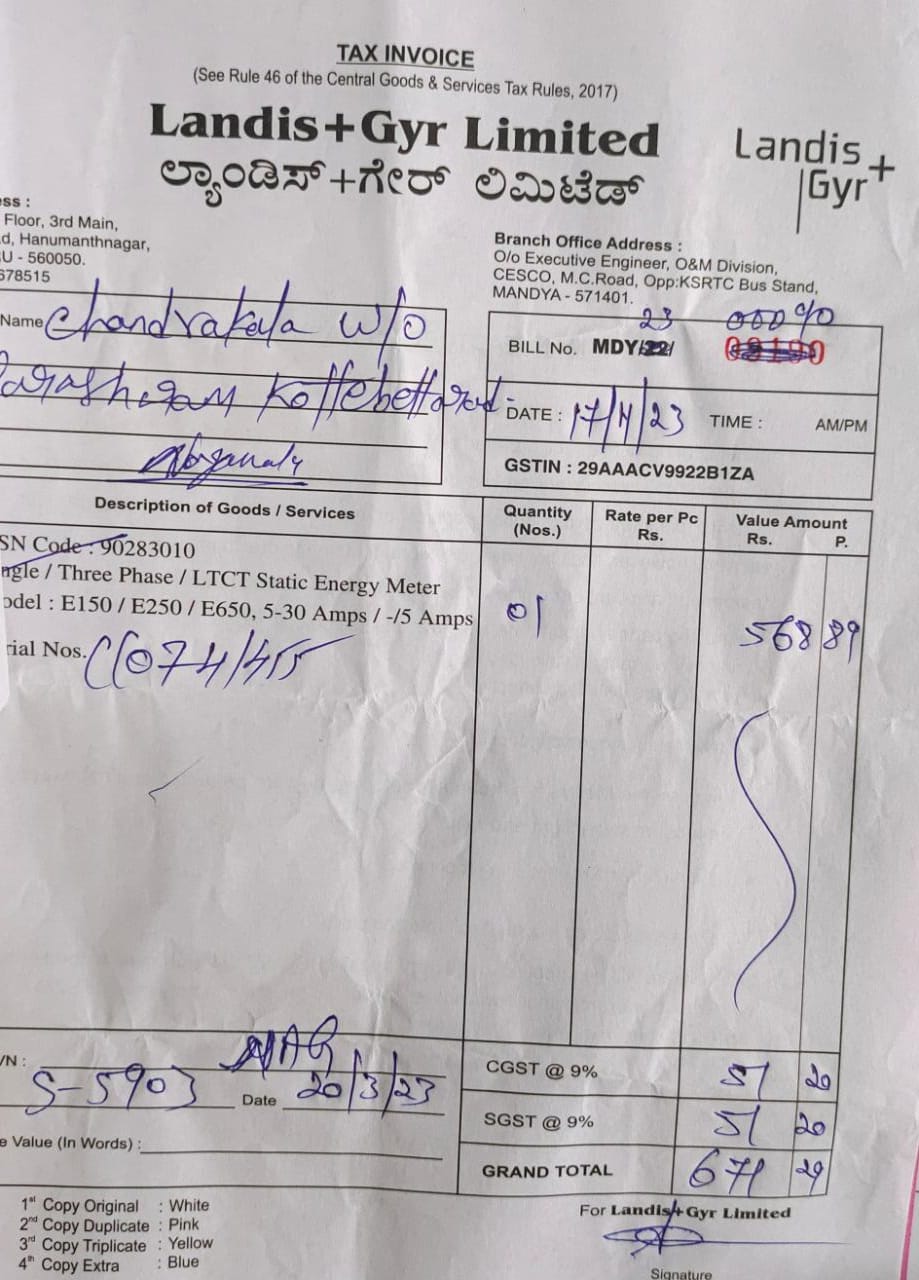 TAX INVOICE
(See Rule 46 of the Central Goods & Services Tax Rules, 2017)
Landis+Gyr Limited
ಲ್ಯಾಂಡಿಸ್+ಗೇರ್ ಲಿಮಿಟೆಡ್
Landis
Gyr+
ess :
Floor, 3rd Main,
d, Hanumanthnagar,
U - 560050.
678515
Branch Office Address :
O/o Executive Engineer, O&M Division,
CESCO, M.C.Road, Opp:KSRTC Bus Stand,
MANDYA - 571401.
Name Chandrakala W/o
23 00090
BILL No. MDY/22/
DATE : 17/4/23 TIME : AM/PM
GSTIN : 29AAACV9922B1ZA
Description of Goods / Services
Quantity
(Nos.)
Rate per Pc
Rs.
Value Amount
Rs. P.
SN Code : 90283010
ngle / Three Phase / LTCT Static Energy Meter
odel : E150 / E250 / E650, 5-30 Amps / -/5 Amps
01
568 89
rial Nos.
/N :
S-5903 Date 20/3/23
CGST @ 9% 51 20
SGST @ 9% 51 20
e Value (In Words) :
GRAND TOTAL 671 29
1st Copy Original : White
2nd Copy Duplicate : Pink
3rd Copy Triplicate : Yellow
4th Copy Extra : Blue
For Landis+Gyr Limited
Signature